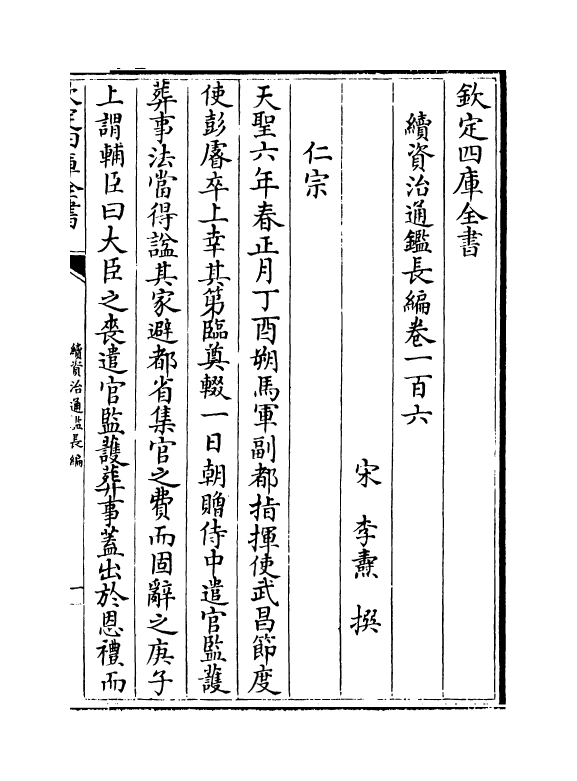 欽定四庫全書
續資治通鑑長編卷一百六
宋 李燾 撰
仁宗
天聖六年春正月丁酉朔馬軍副都指揮使武昌節度
使彭睿卒上幸其第臨奠輟一日朝贈侍中遣官監護
葬事法當得諡其家避都省集官之費而固辭之庚子
上謂輔臣曰大臣之喪遣官監護葬事蓋出於恩禮而
欽定四庫全書
續資治通鑑長編
一